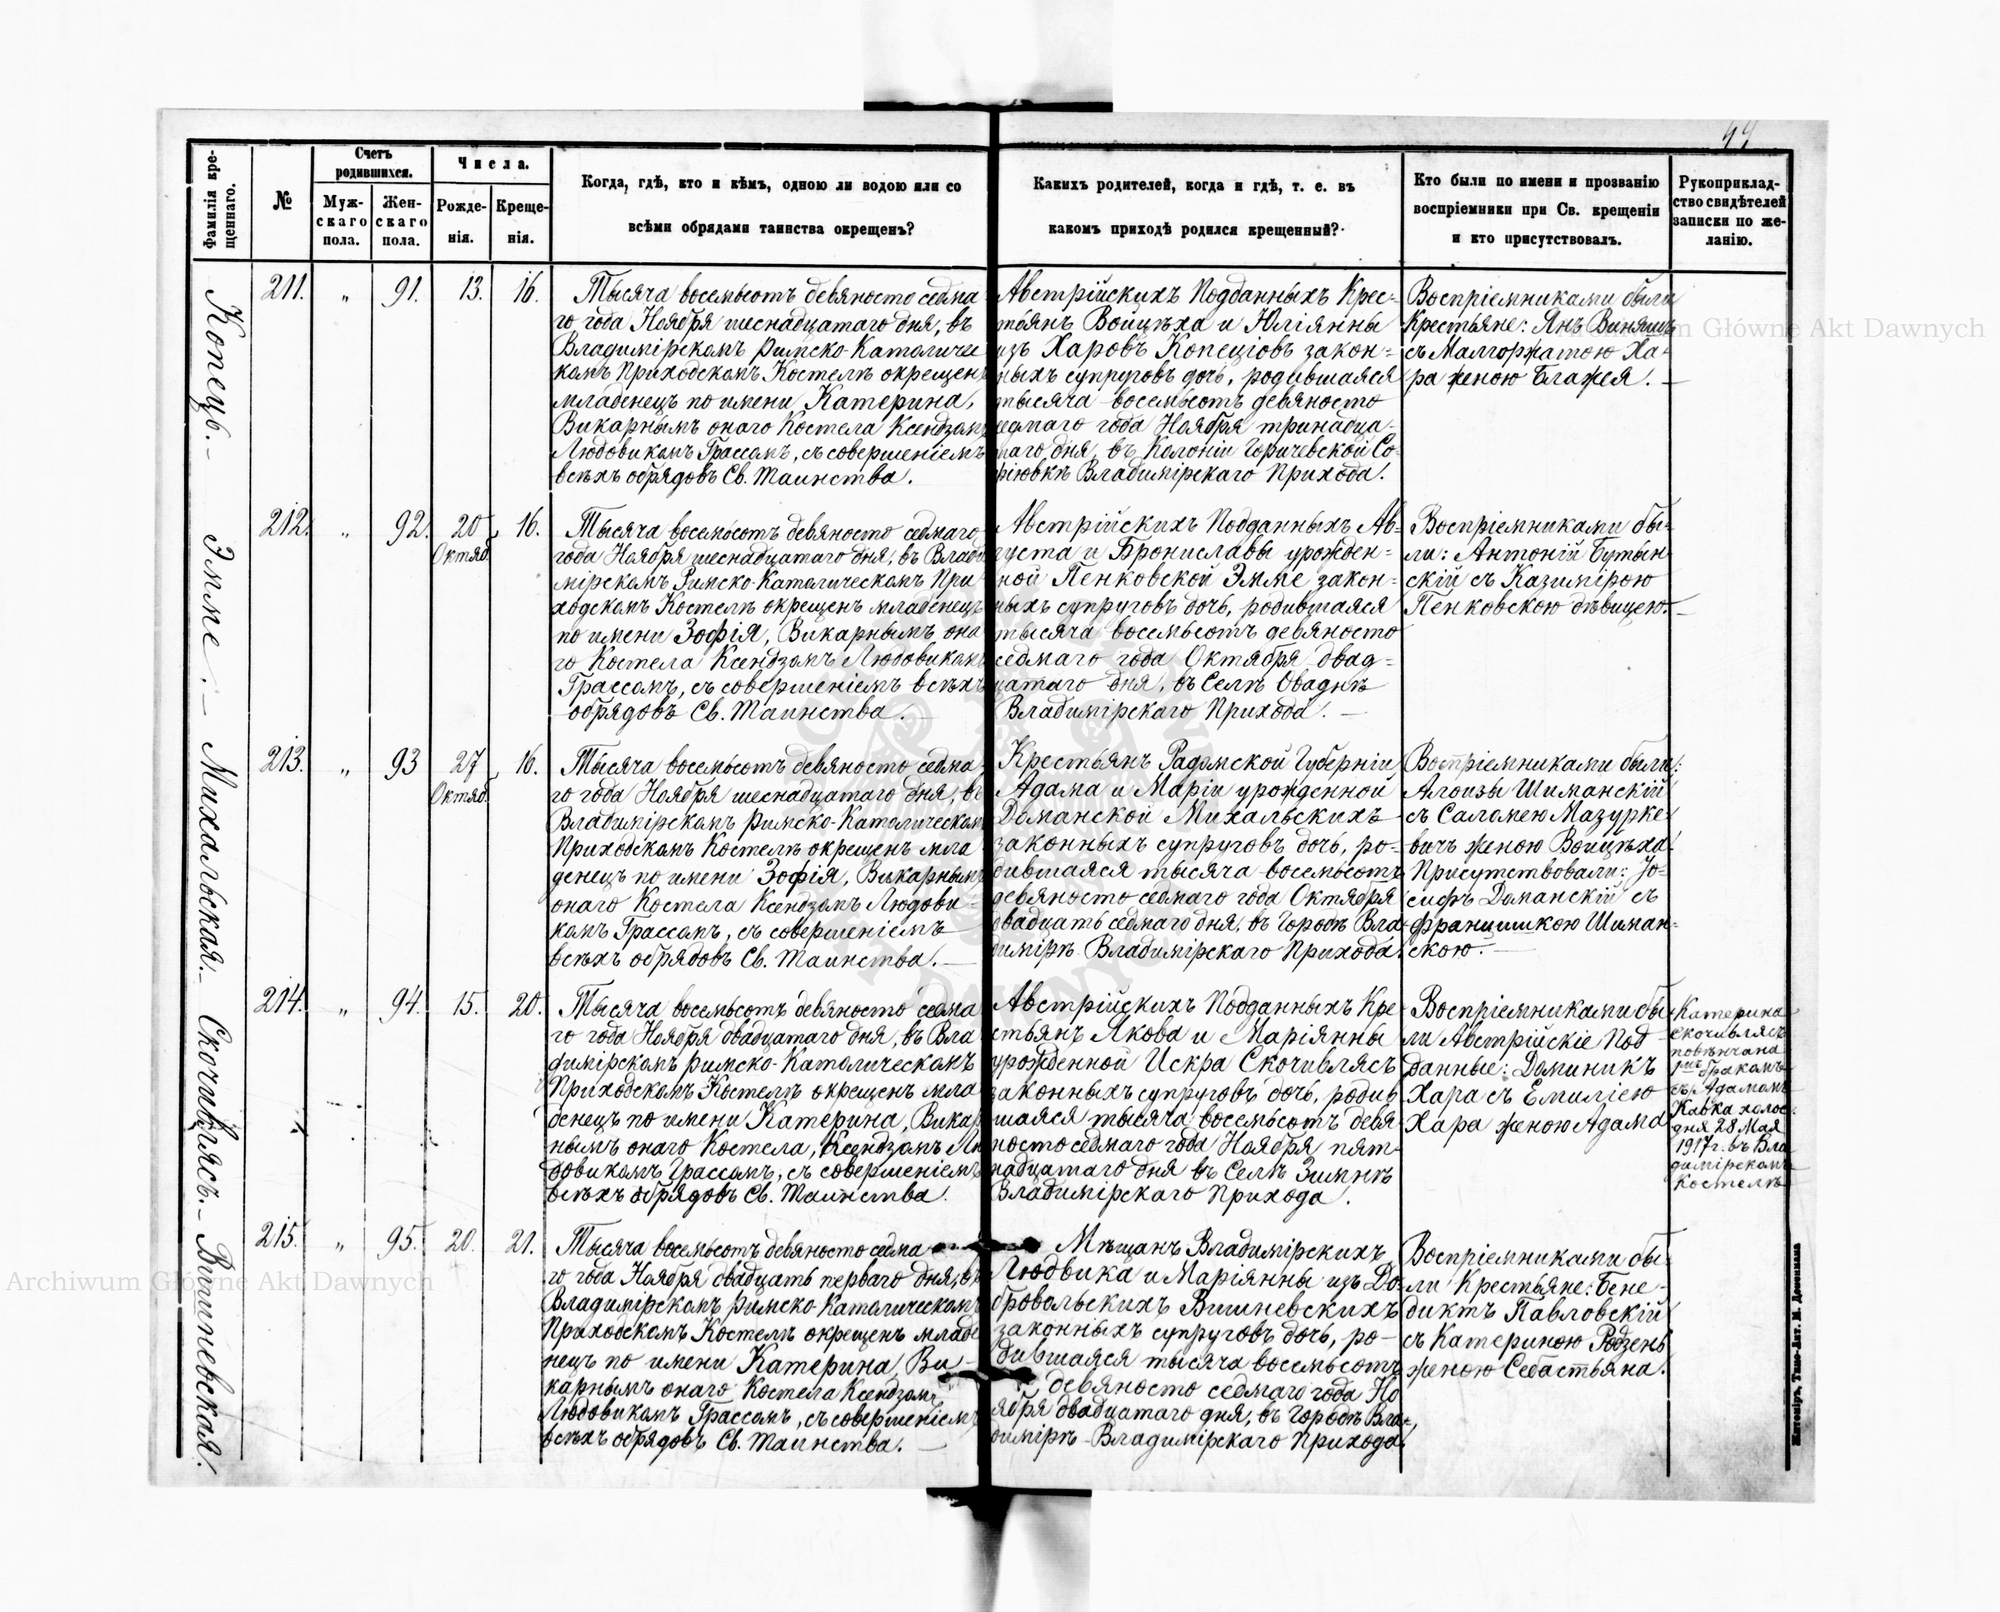 44
Фамилія кре-
щеннаго.
№
Счетъ
родившихся.
Муж-
скаго
пола.
Жен-
скаго
пола.
Числа.
Рожде-
нія.
Креще-
нія.
Когда, гдѣ, кто и кѣмъ, одною ли водою или со
всѣми обрядами таинства окрещенъ?
Какихъ родителей, когда и гдѣ, т. е. въ
какомъ приходѣ родился крещенный?
Кто были по имени и прозванію
воспріемники при Св. крещеніи
и кто присутствовалъ.
Рукоприклад-
ство свидѣтелей
записки по же-
ланію.
Копецъ.
211.
"
91.
13.
16.
Тысяча восемьсотъ девяносто седма-
го года Ноября шеснадцатаго дня, въ
Владимірскомъ Римско-Католичес
комъ Приходскомъ Костелѣ окрещенъ
младенецъ по имени Катерина,
Викарнымъ онаго Костела Ксендзомъ
Людовикомъ Грассомъ, съ совершеніемъ
всѣхъ обрядовъ Св. Таинства.
Австрійскихъ Подданныхъ Крес-
тьянъ Войцѣха и Юліянны
изъ Харовъ Копеціовъ закон-
ныхъ супруговъ дочь, родившаяся
тысяча восемьсотъ девяносто
седмаго года Ноября тринадца-
таго дня, въ Колоніи Горичевской Со-
фіювкѣ Владимірскаго Прихода.
Воспріемниками были
Крестьяне: Янъ Виняшъ
съ Малгоржатою Ха-
ра женою Блажея.
Эмме.
212.
"
92.
20
Октяб.
16.
Тысяча восемьсотъ девяносто седмаго
года Ноября шеснадцатаго дня, въ Влади
мірскомъ Римско-Католическомъ При
ходскомъ Костелѣ окрещенъ младенецъ
по имени Зофія, Викарнымъ она
го Костела Ксендзомъ Людовикомъ
Грассомъ, съ совершеніемъ всѣхъ
обрядовъ Св. Таинства.
Австрійскихъ Подданныхъ Ав-
густа и Брониславы урожден-
ной Пенковской Эмме закон-
ныхъ супруговъ дочь, родившаяся
тысяча восемьсотъ девяносто
седмаго года Октября двад-
цатаго дня, въ Селѣ Овaднѣ
Владимірскаго Прихода.
Воспріемниками бы-
ли: Антоній Бутын-
скій съ Казимірою
Пенковскою дѣвицею.
Михальская.
213.
"
93
27
Октяб.
16.
Тысяча восемьсотъ девяносто седма-
го года Ноября шеснадцатаго дня, въ
Владимірскомъ Римско-Католическомъ
Приходскомъ Костелѣ окрещенъ мла
денецъ по имени Зофія, Викарнымъ
онаго Костела Ксендзомъ Людови-
комъ Грассомъ, съ совершеніемъ
всѣхъ обрядовъ Св. Таинства.
Крестьянъ Радомской Губерніи
Адама и Маріи урожденной
Доманской Михальскихъ
законныхъ супруговъ дочь, ро-
дившаяся тысяча восемьсотъ
девяносто седмаго года Октября
двадцать седмаго дня, въ Городѣ Вла-
димірѣ Владимірскаго Прихода.
Воспріемниками были:
Алоизы Шиманскій
съ Саломею Мазурке-
вичъ женою Войцѣха.
Присутствовали: Іо-
сифъ Доманскій съ
Францишкою Шиман-
скою.
Скочиврясъ.
214.
"
94.
15.
20.
Тысяча восемьсотъ девяносто седма
го года Ноября двадцатаго дня, въ Вла
димірскомъ Римско-Католическомъ
Приходскомъ Костелѣ окрещенъ мла
денецъ по имени Катерина, Викар
нымъ онаго Костела, Ксендзомъ Лю
довикомъ Грассомъ, съ совершеніемъ
всѣхъ обрядовъ Св. Таинства.
Австрійскихъ Подданныхъ Кре
стьянъ Якова и Маріянны
урожденной Искра Скочивлясъ
законныхъ супруговъ дочь, родив
шаяся тысяча восемьсотъ девя
носто седмаго года Ноября пят-
надцатаго дня въ Селѣ Зимнѣ
Владимірскаго Прихода.
Воспріемниками бы-
ли Австрійскіе Под
данные: Доминикъ
Хара съ Емиліею
Хара женою Адама
Катерина
Скочивлясъ
повѣнчана
1мъ бракомъ
съ Адамомъ
Кавка холос.
дня 28 Мая
1917 г. въ Вла
димірскомъ
Костелѣ
Вишневская.
215.
"
95.
20.
21.
Тысяча восемьсотъ девяносто седма
го года Ноября двадцать перваго дня, въ
Владимірскомъ Римско-Католическомъ
Приходскомъ Костелѣ окрещенъ младе
нецъ по имени Катерина, Ви-
карнымъ онаго Костела Ксендзомъ
Людовикомъ Грассомъ, съ совершеніемъ
всѣхъ обрядовъ Св. Таинства.
Мѣщанъ Владимірскихъ
Людвика и Маріянны изъ До-
бровольскихъ Вишневскихъ
законныхъ супруговъ дочь, ро-
дившаяся тысяча восемьсотъ
девяносто седмаго года Но
ября двадцатаго дня, въ Городѣ Вла-
димірѣ Владимірскаго Прихода.
Воспріемниками бы-
ли Крестьяне: Бене-
диктъ Павловскій
съ Катериною Родзень
женою Себастьяна.
Житоміръ, Типо-Лит. М. Дененмана
Archiwum Główne Akt Dawnych
Archiwum Główne Akt Dawnych